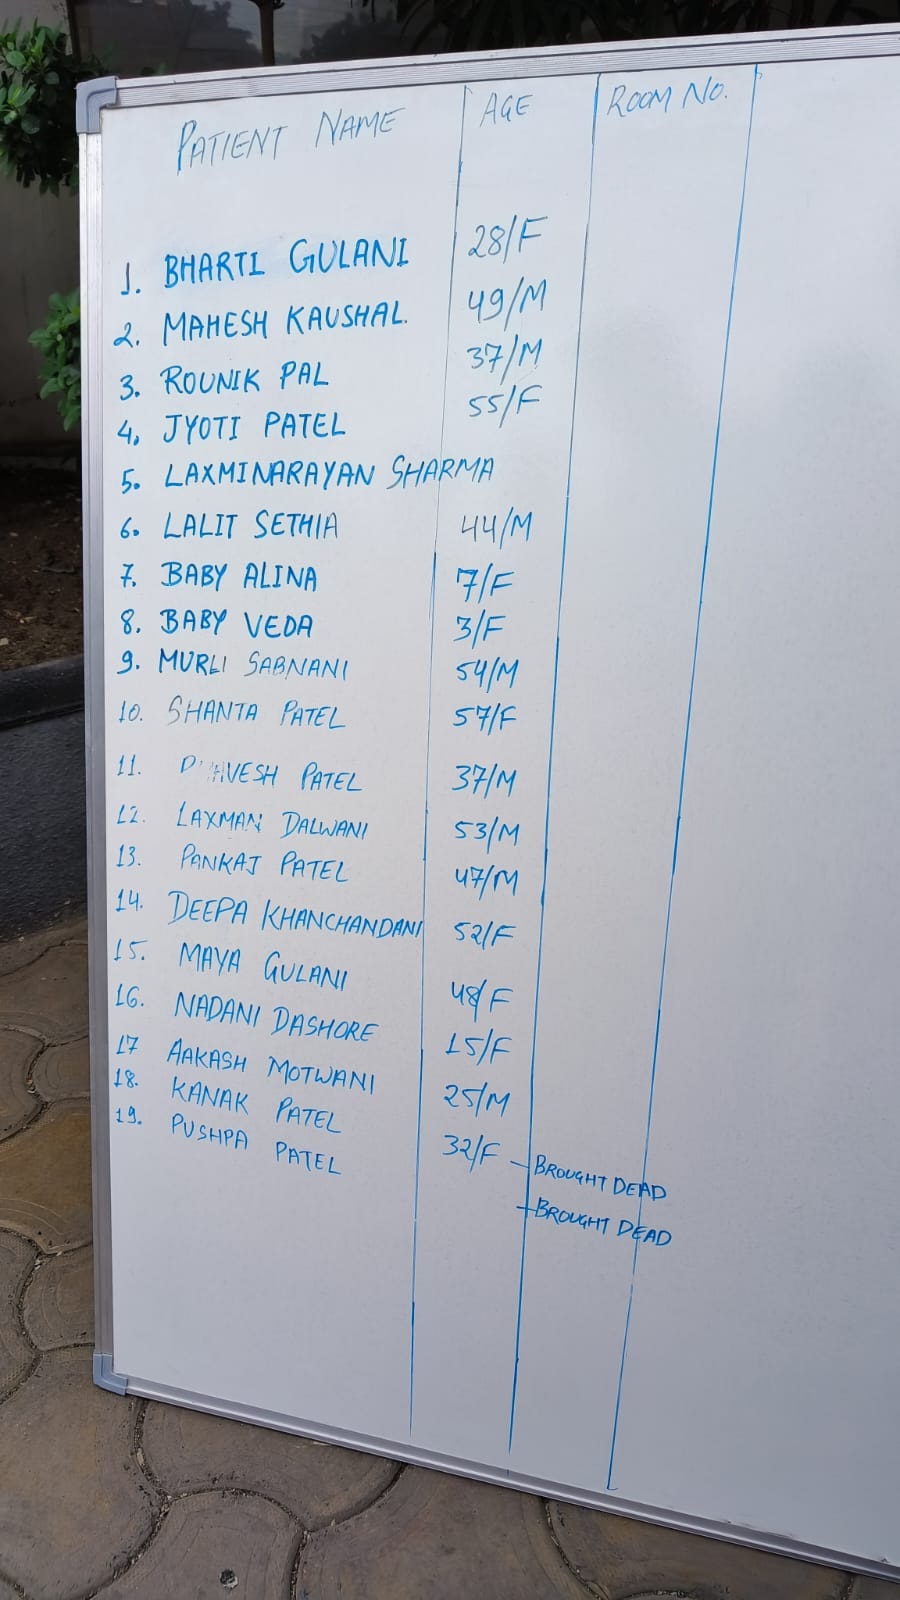 PATIENT NAME AGE ROOM NO.
1. BHARTI GULANI 28/F
2. MAHESH KAUSHAL. 49/M
3. ROUNIK PAL 37/M
4. JYOTI PATEL 55/F
5. LAXMINARAYAN SHARMA
6. LALIT SETHIA 44/M
7. BABY ALINA 7/F
8. BABY VEDA 3/F
9. MURLI SABNANI 54/M
10. SHANTA PATEL 57/F
11. PATEL 37/M
12. LAXMAN DALWANI 53/M
13. PANKAJ PATEL 47/M
14. DEEPA KHANCHANDANI 52/F
15. MAYA GULANI 48/F
16. NADANI DASHORE 15/F
17 AAKASH MOTWANI 25/M
18. KANAK PATEL 32/F - BROUGHT DEAD
19. PUSHPA PATEL - BROUGHT DEAD